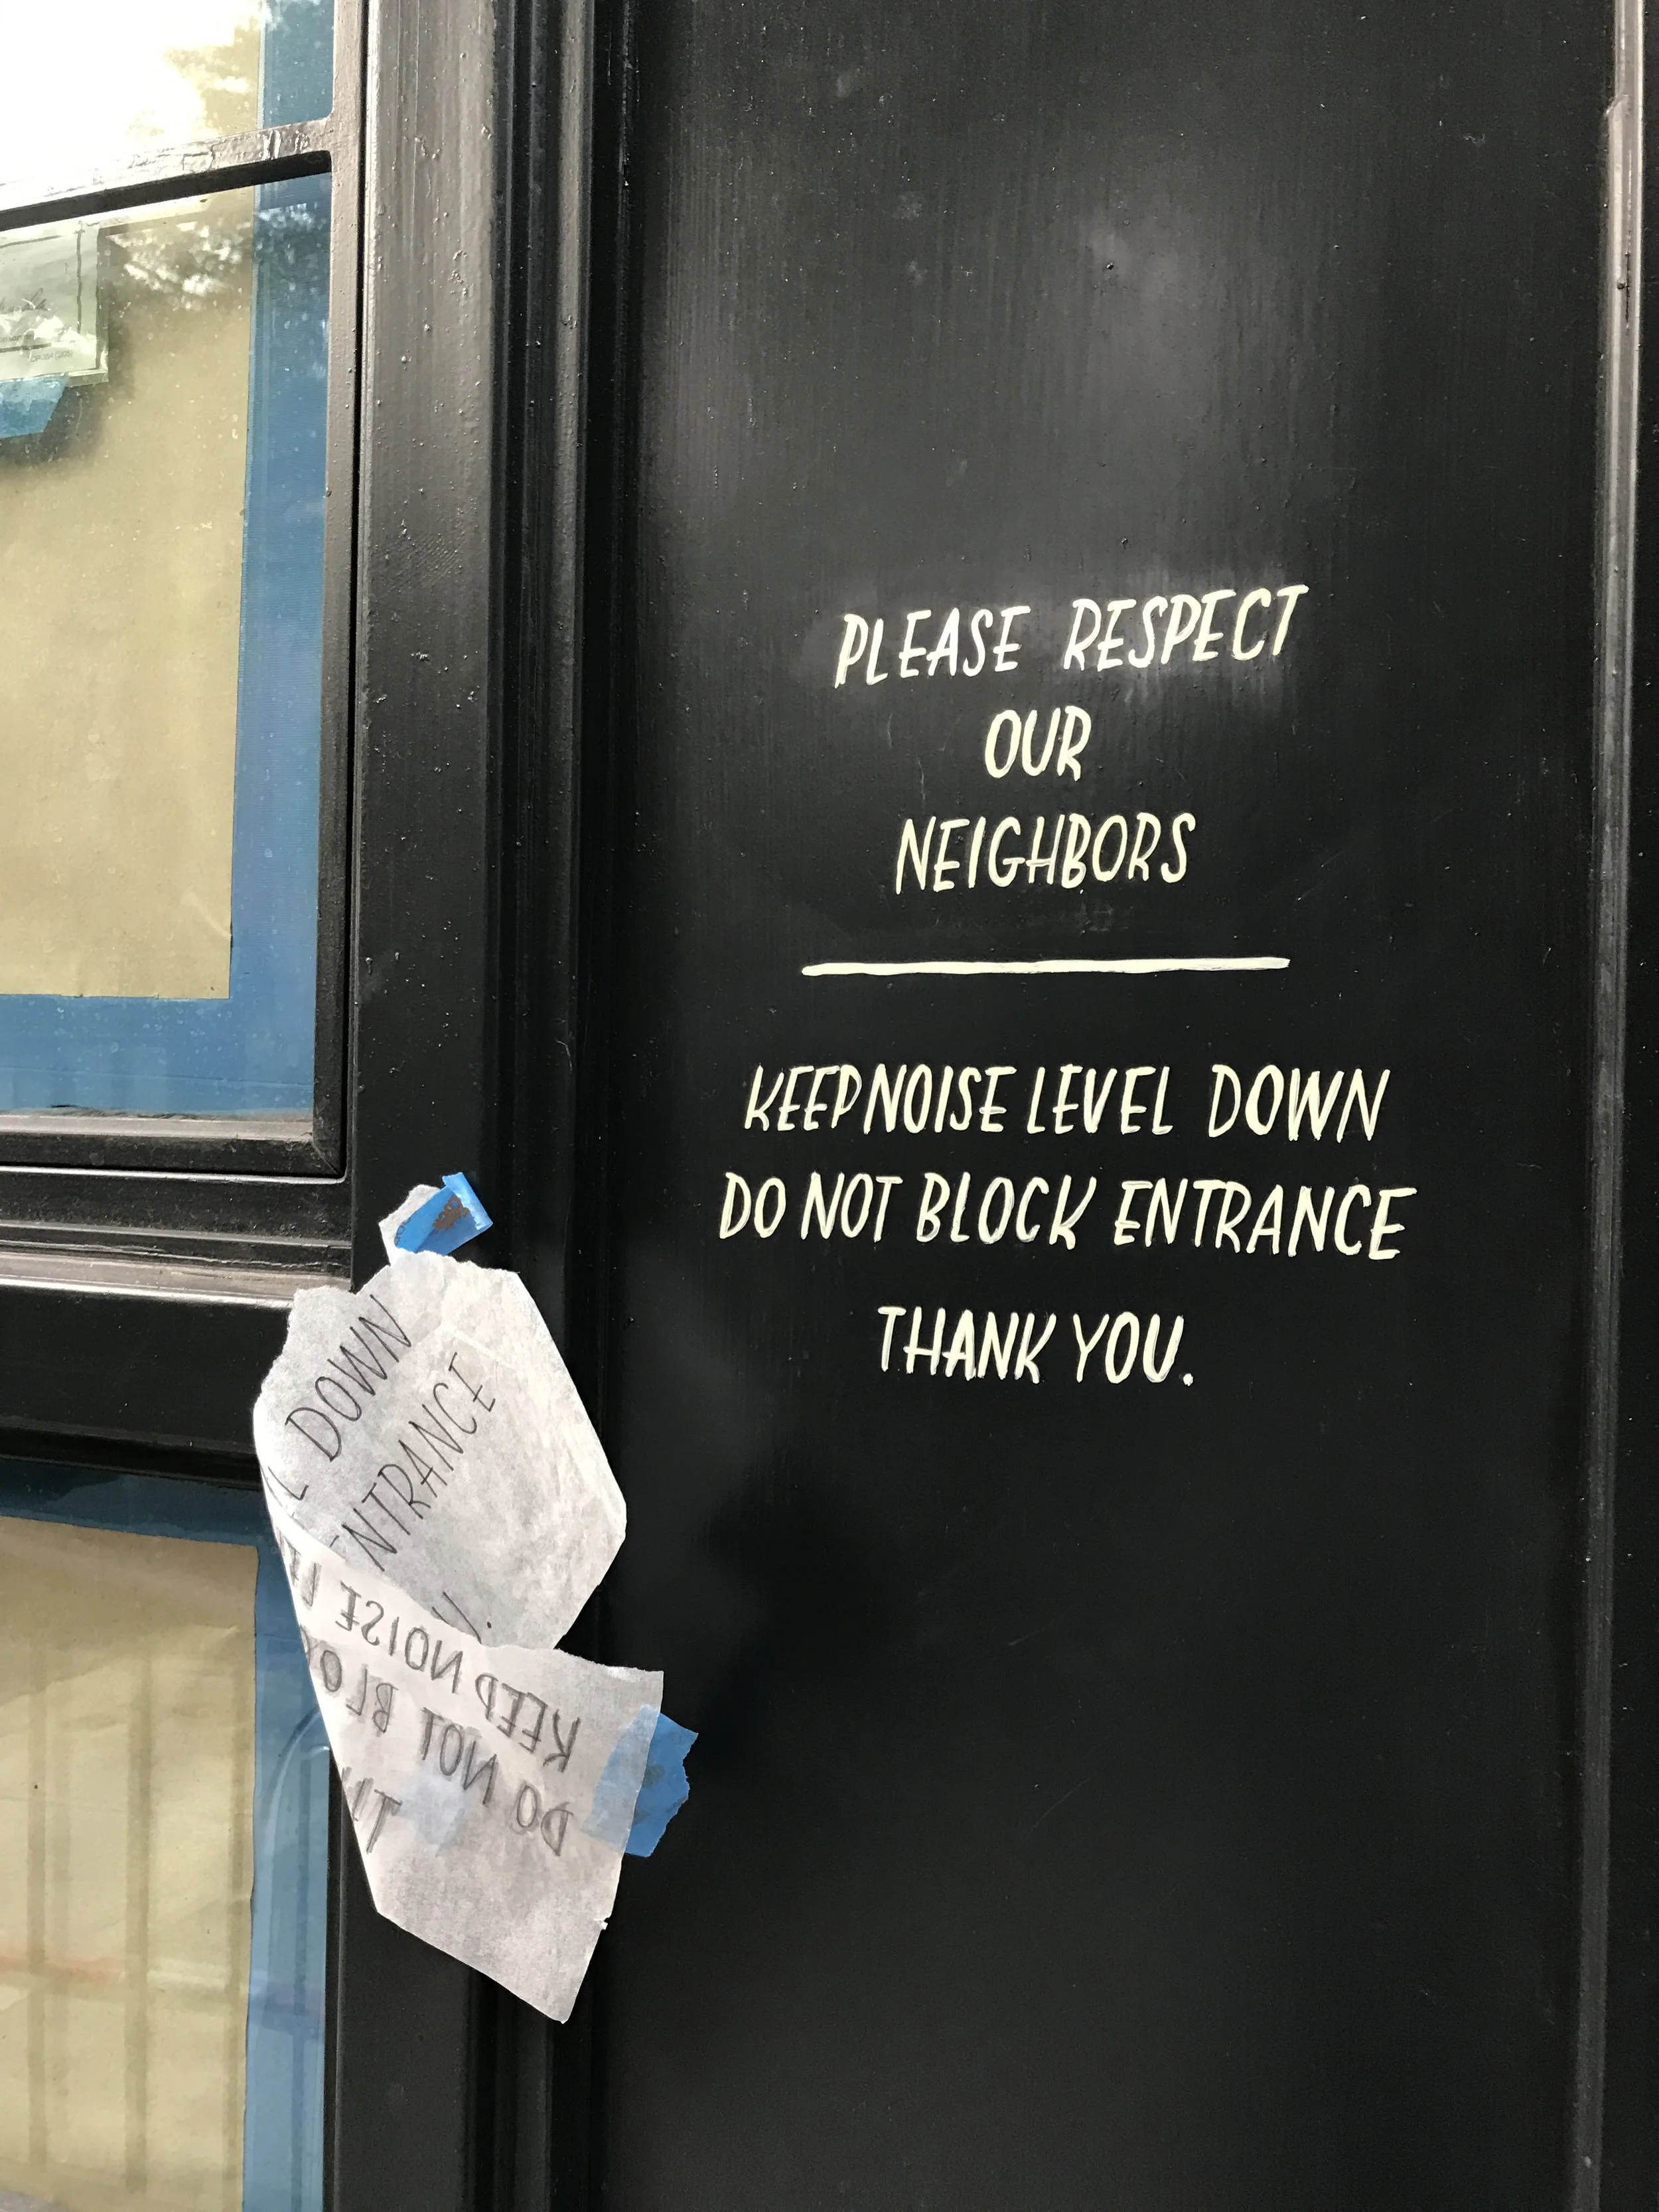 PLEASE RESPECT
OUR
NEIGHBORS
KEEP NOISE LEVEL DOWN
DO NOT BLOCK ENTRANCE
THANK YOU.
L DOWN
ENTRANCE
U.
KEEP NOISE LE
DO NOT BLO
TH